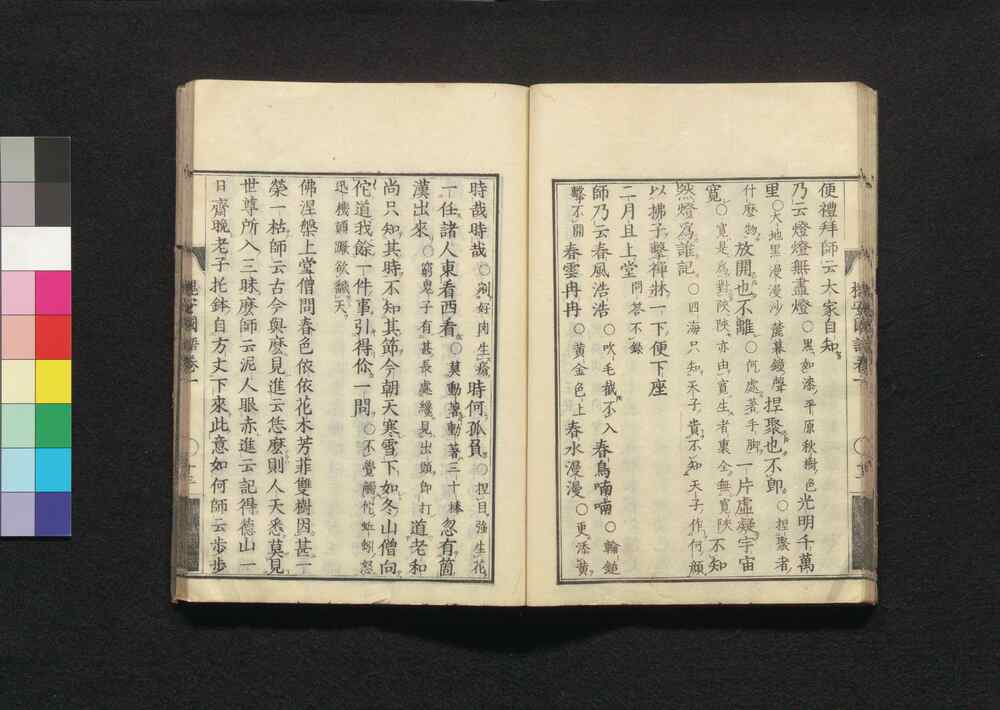 便禮拜師云大家自知
乃云燈燈無盡燈○黑如漆平原秋樹色光明千萬
里○大地黑漫漫沙麓暮鐘聲捏聚也不卽○捏聚者
什麼物放開也不離○何處著手脚一片虛凝宇宙
寬○寬是爲對陝陝亦由寬生者裏全無寬陝不知
然燈爲誰記○四海只知天子貴不知天子作何顏
以拂子擊禪牀一下便下座
二月旦上堂問答不錄
師乃云春風浩浩○吹毛截不入春鳥喃喃○輪鎚
擊不開春雲冉冉○黃金色上春水漫漫○更添黃
時哉時哉○剜好肉生瘡時何孤負○捏目強生花
一任諸人東看西看○莫動著動著三十棒忽有箇
漢出來○窮鬼子有甚長處纔見出頭卽打道老和
尚只知其時不知其節今朝天寒雪下如冬山僧向
佗道我餘一件事引得伱一問○不覺觸佗蚯蚓忽
迅機頭蹶欲飜天
佛涅槃上堂僧問春色依依花木芳菲雙樹因甚一
榮一枯師云古今與麼見進云恁麼則人天悉莫見
世尊所入三昧麼師云泥人眼赤進云記得德山一
日齋晚老子托鉢自方丈下來此意如何師云步步